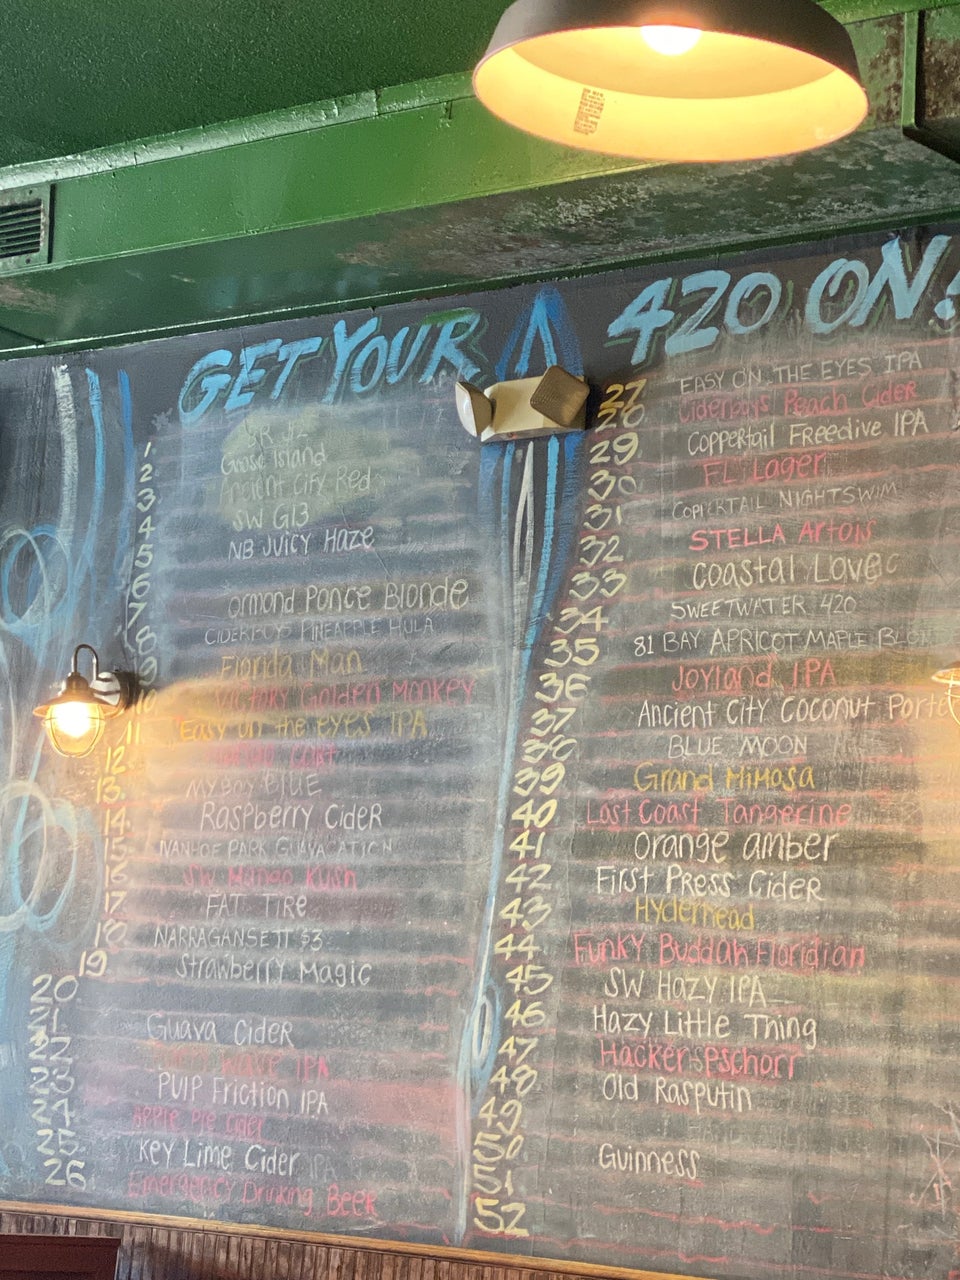 GET YOUR
420 ON!
1
2
3
4
5
6
7
8
9
10
11
12
13
14
15
16
17
18
19
20
21
22
23
24
25
26
Goose Island
Ancient City Red
SW G13
NB JUICY HAZE
Ormond Ponce Blonde
CIDERBOYS PINEAPPLE HULA
Florida Man
Victory Golden Monkey
Easy on the eyes IPA
BLUE
Raspberry Cider
IVANHOE PARK GUAVACATION
SW Mango Kush
FAT TIRe
NARRAGANSETT $3
Strawberry Magic
Guava Cider
Wave IPA
PULP Friction IPA
Apple Pie Cider
Key Lime Cider
Emergency Drinking Beer
27
28
29
30
31
32
33
34
35
36
37
38
39
40
41
42
43
44
45
46
47
48
49
50
51
52
EASY ON THE EYES IPA
Ciderboys Peach Cider
Coppertail Freedive IPA
FL Lager
COPPERTAIL NIGHTSWIM
STELLA Artois
Coastal
SWEETWATER 420
81 BAY APRICOT MAPLE BLON
Joyland IPA
Ancient City Coconut Porte
BLUE MOON
Grand Mimosa
Last Coast Tangerine
Orange amber
First Press Cider
Hyderhead
Funky Buddah Floridian
SW Hazy IPA
Hazy Little Thing
Hacker-Pschorr
Old Rasputin
Guinness